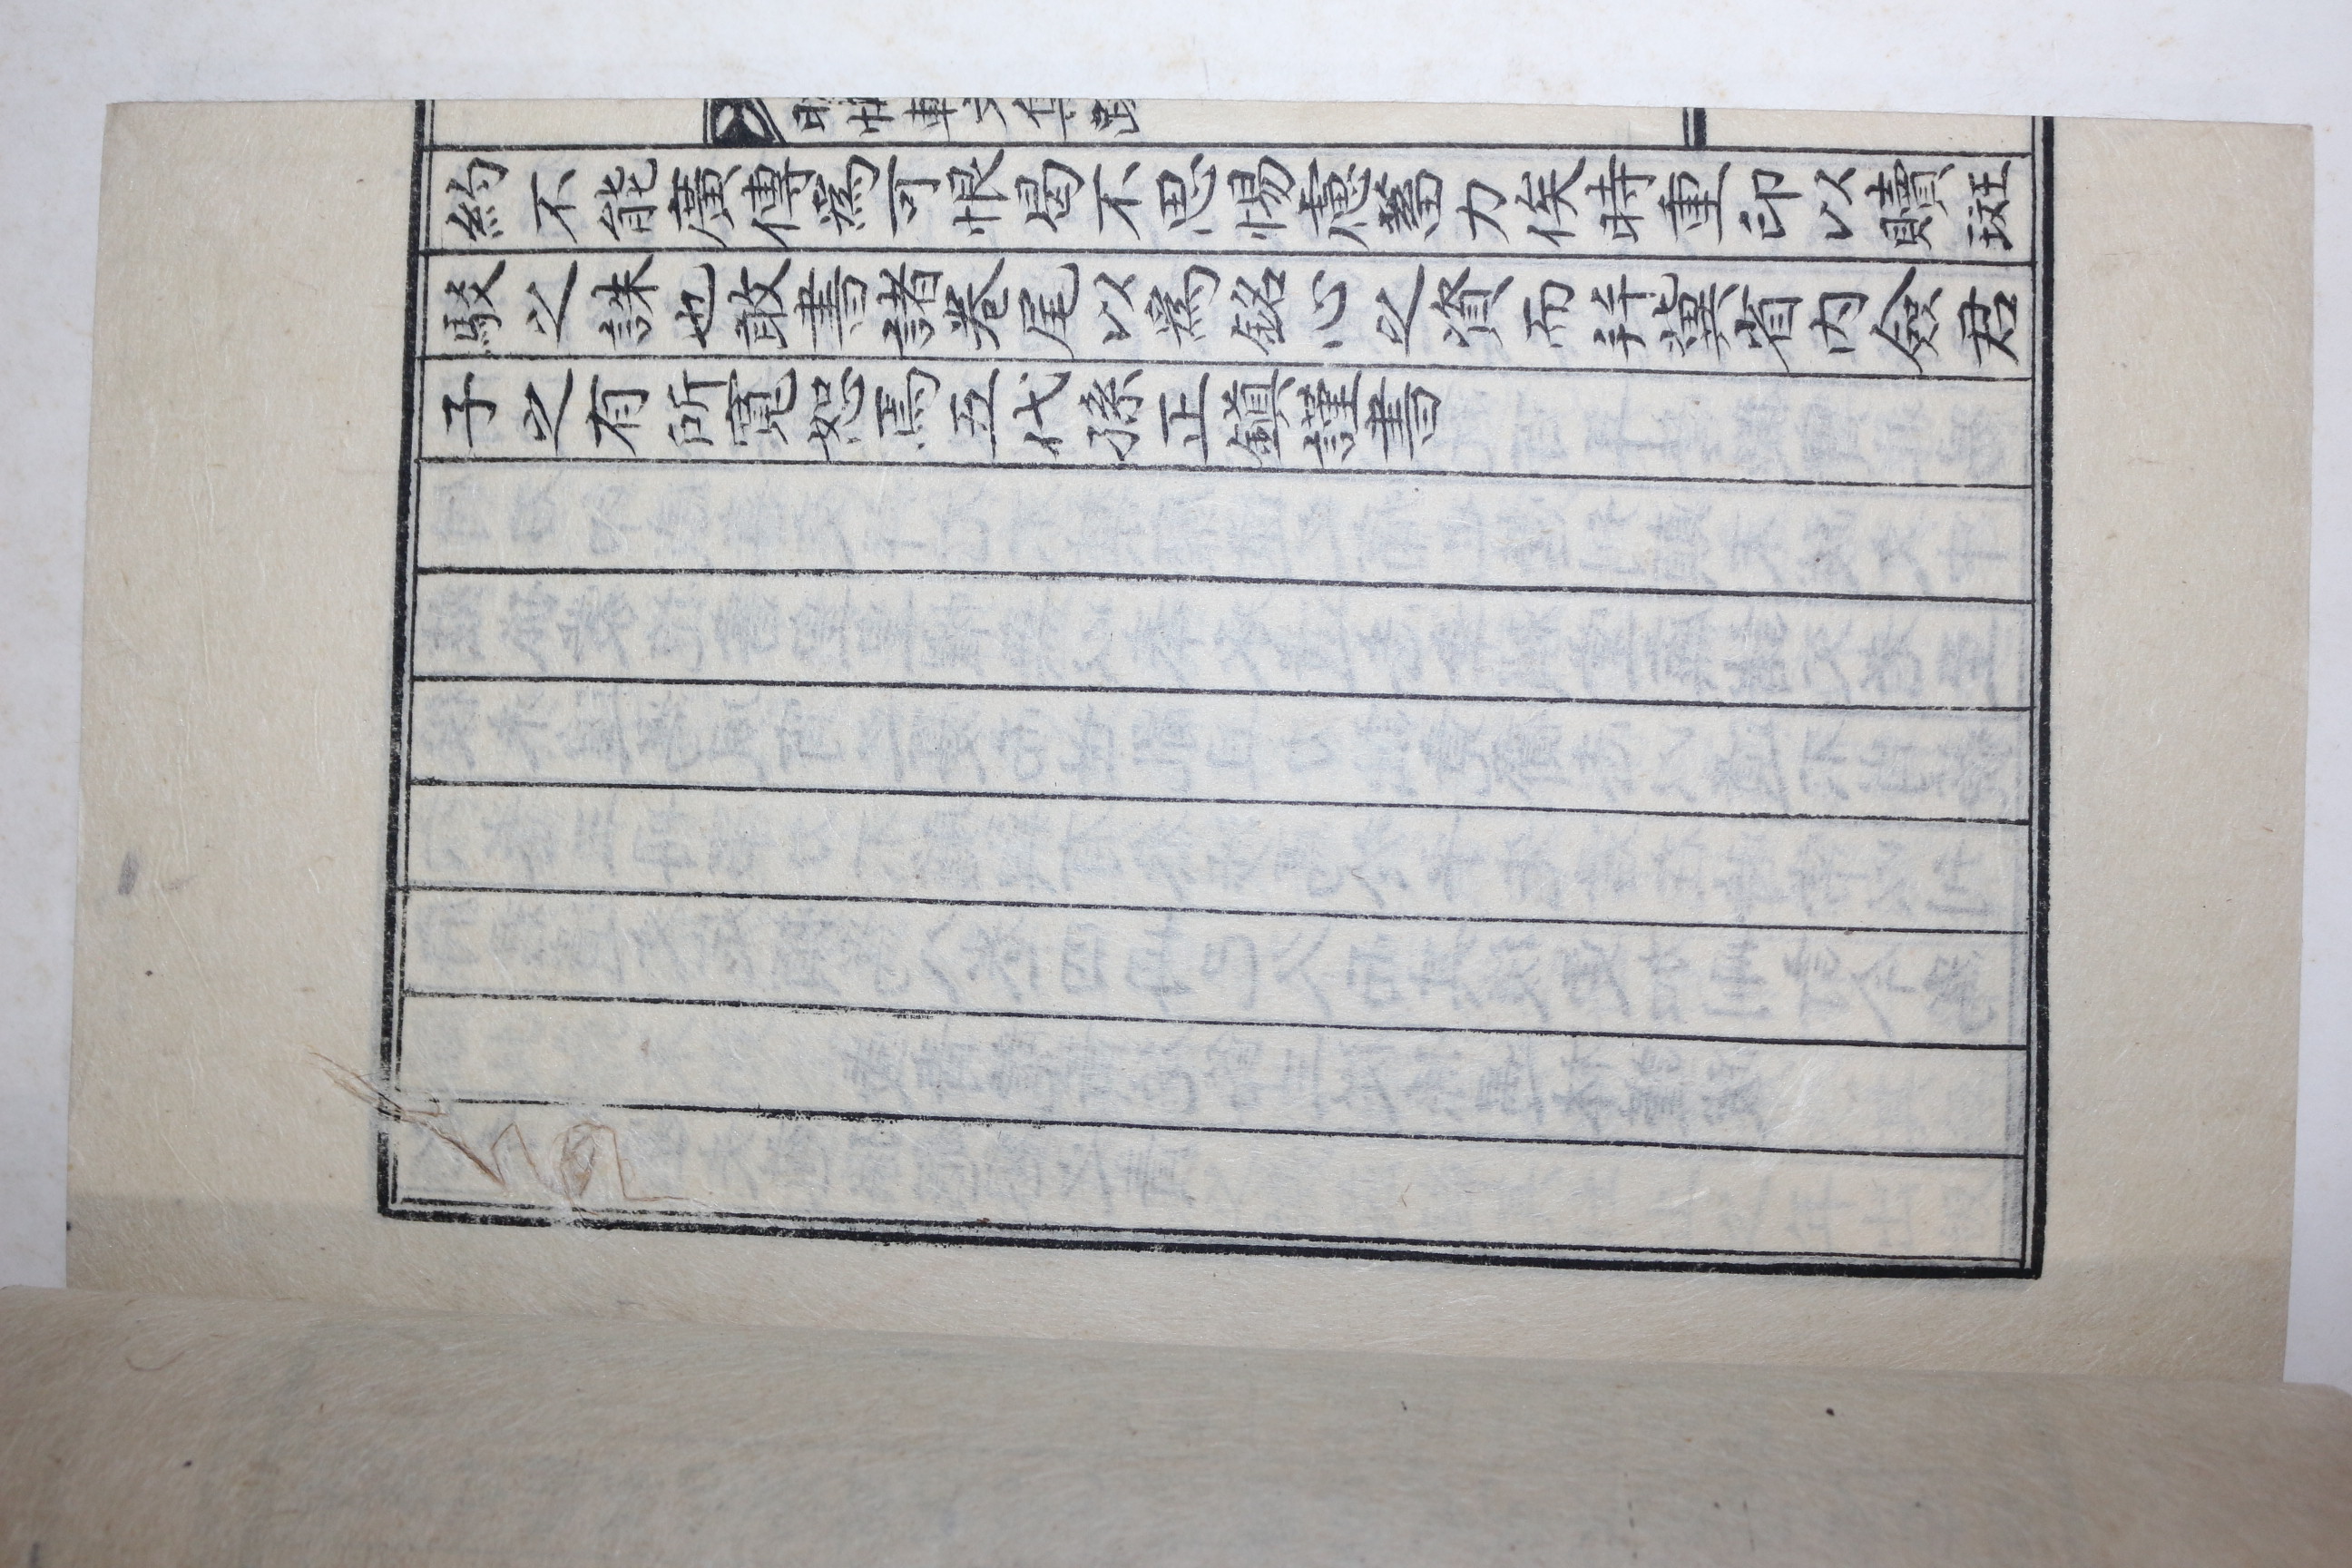 軒文集跋
約不能廣傳爲可恨曷不思惕慮蓄力俟時重印以贖斑
駁之誅也敢書諸卷尾以爲銘心之資而幷冀省內僉君
子之有所寬恕焉五代孫正鎭謹書